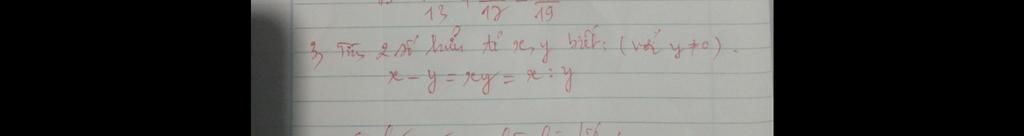 13 + 17 - 19
3, Tìm 2 số hữu tỉ x, y biết: (với y ≠ 0).
x - y = xy = x : y